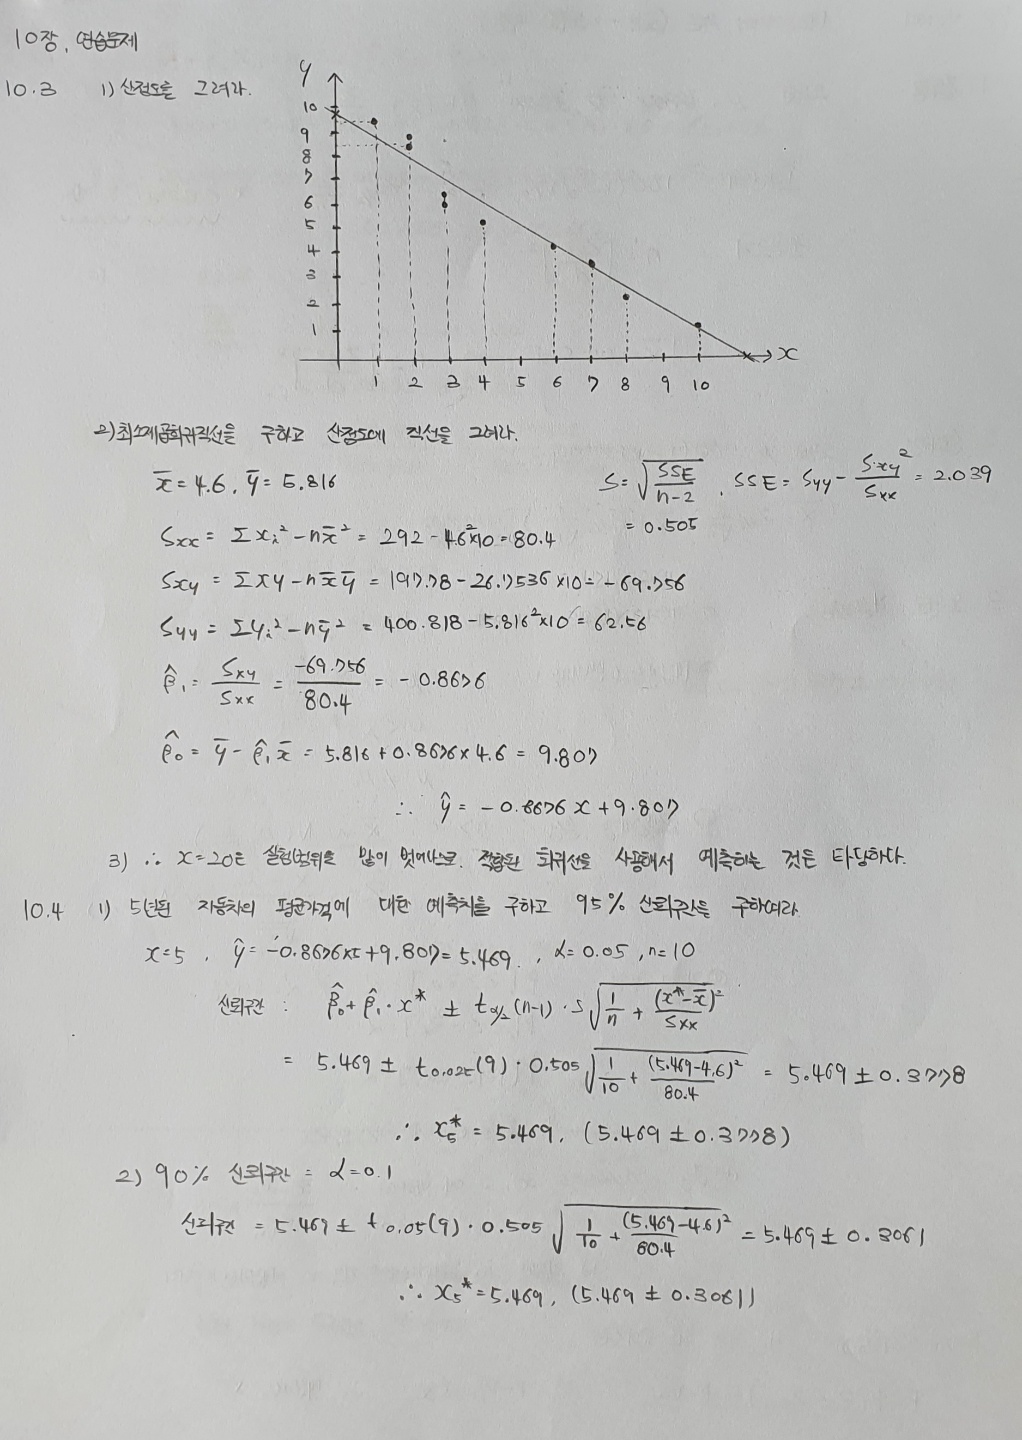 10장, 연습문제
10.3 1) 산점도를 그려라.
y
10
9
8
7
6
5
4
3
2
1
1 2 3 4 5 6 7 8 9 10 x
2) 최소제곱회귀직선을 구하고 산점도에 직선을 그어라.
x̄ = 4.6, ȳ = 5.816
S = √(SSE/(n-2)), SSE = Syy - Sxy²/Sxx = 2.039
= 0.505
Sxx = Σxᵢ² - nx̄² = 292 - 4.6²×10 = 80.4
Sxy = Σxy - nx̄ȳ = 197.78 - 26.7536×10 = -69.756
Syy = Σyᵢ² - nȳ² = 400.818 - 5.816²×10 = 62.56
β̂₁ = Sxy/Sxx = -69.756/80.4 = -0.8676
β̂₀ = ȳ - β̂₁x̄ = 5.816 + 0.8676×4.6 = 9.807
∴ ŷ = -0.8676x + 9.807
3) ∴ x=20은 실험범위를 많이 벗어나므로. 적합된 회귀선을 사용해서 예측하는 것은 타당하다.
10.4 1) 5년된 자동차의 평균가격에 대한 예측치를 구하고 95% 신뢰구간을 구하여라.
x=5, ŷ = -0.8676×5+9.807 = 5.469., α = 0.05, n=10
신뢰구간 : β̂₀+β̂₁·x* ± t_{α/2}(n-1)·S√(1/n + (x*-x̄)²/Sxx)
= 5.469 ± t_{0.025}(9)·0.505√(1/10 + (5.469-4.6)²/80.4) = 5.469 ± 0.3778
∴ x₅* = 5.469, (5.469 ± 0.3778)
2) 90% 신뢰구간 = α=0.1
신뢰구간 = 5.469 ± t_{0.05}(9)·0.505√(1/10 + (5.469-4.6)²/80.4) = 5.469 ± 0.3061
∴ x₅* = 5.469, (5.469 ± 0.3061)